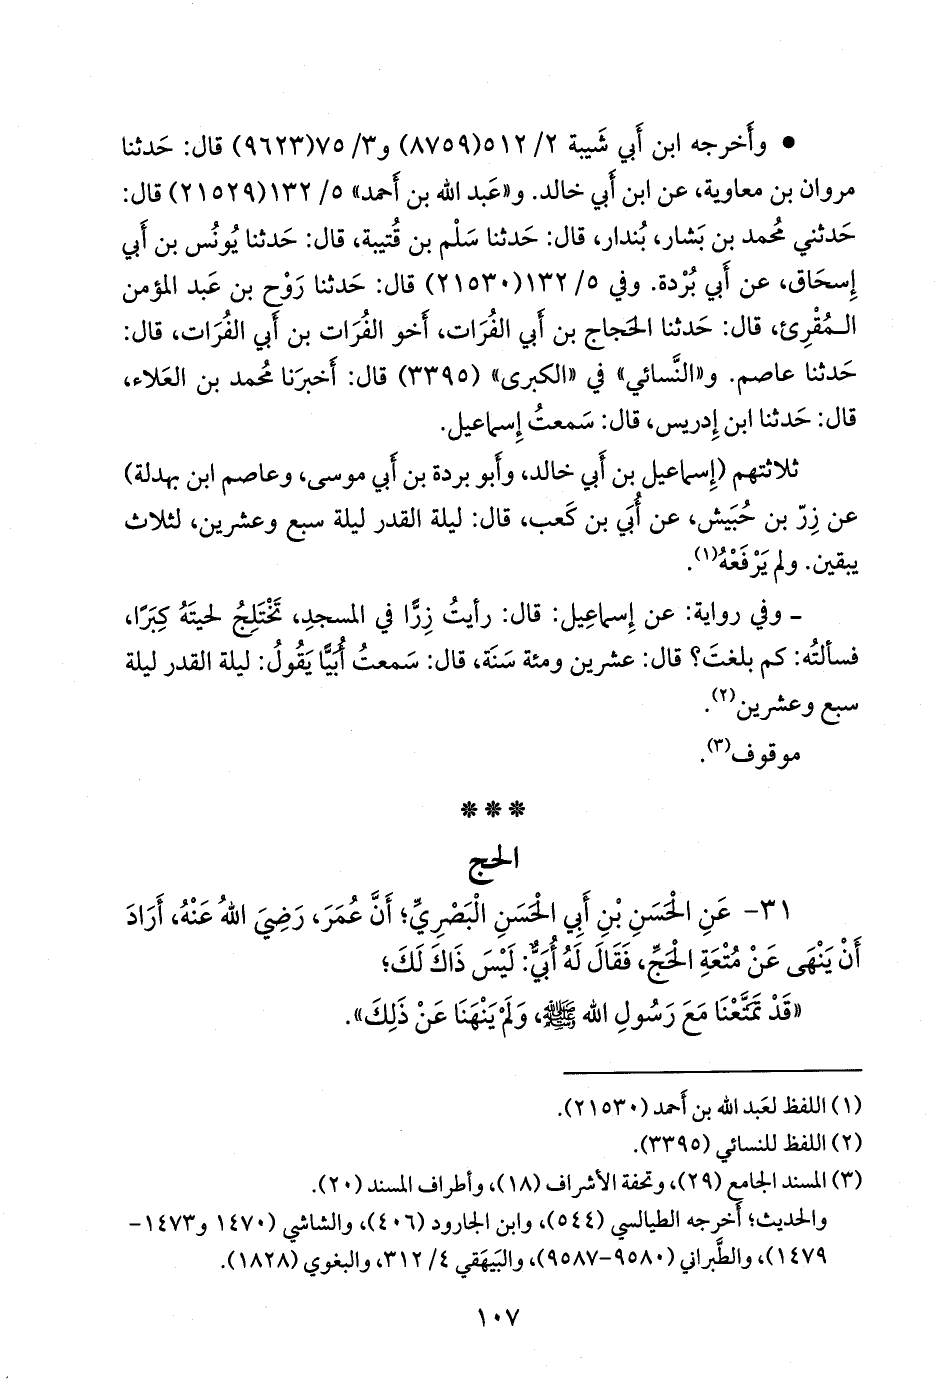 • وأَخرجه ابن أَبي شَيبة ٢/ ٥١٢(٨٧٥٩) و٣/ ٧٥(٩٦٢٣) قال: حَدثنا
مروان بن معاوية، عن ابن أَبي خالد. و«عَبد الله بن أَحمد» ٥/ ١٣٢(٢١٥٢٩) قال:
حَدثني مُحمد بن بَشار، بُندار، قال: حَدثنا سَلْم بن قُتيبة، قال: حَدثنا يُونُس بن أَبي
إِسحَاق، عن أَبي بُرْدة. وفي ٥/ ١٣٢(٢١٥٣٠) قال: حَدثنا رَوْح بن عَبد المؤمن
الـمُقْرِئ، قال: حَدثنا الحَجاج بن أَبي الفُرَات، أَخو الفُرَات بن أَبي الفُرَات، قال:
حَدثنا عاصم. و«النَّسائي» في «الكبرى» (٣٣٩٥) قال: أَخبرَنا مُحمد بن العَلاء،
قال: حَدثنا ابن إِدريس، قال: سَمعتُ إِسماعيل.
ثلاثتهم (إِسماعيل بن أَبي خالد، وأَبو بردة بن أَبي موسى، وعاصم ابن بهدلة)
عن زِرّ بن حُبَيش، عن أُبَي بن كَعب، قال: ليلة القدر ليلة سبع وعشرين، لثلاث
يبقين. ولم يَرْفَعْهُ(١).
ـ وفي رواية: عن إِسماعِيل: قال: رأَيتُ زِرًّا في المسجدِ، تَخْتَلِجُ لحيتَهُ كِبَرًا،
فسأَلتُه: كم بلغتَ؟ قال: عشرين ومئة سَنَة، قال: سَمعتُ أُبَيًّا يَقُولُ: ليلة القدر ليلة
سبع وعشرين(٢).
موقوف(٣).
* * *
الحج
٣١- عَنِ الحَسَنِ بْنِ أَبِي الحَسَنِ الْبَصْرِيِّ؛ أَنَّ عُمَرَ، رَضِيَ اللهُ عَنْهُ، أَرَادَ
أَنْ يَنْهَى عَنْ مُتْعَةِ الحَجِّ، فَقَالَ لَهُ أُبَيٌّ: لَيْسَ ذَاكَ لَكَ؛
«قَدْ تَمَتَّعْنَا مَعَ رَسُولِ الله ﷺ، وَلَمْ يَنْهَنَا عَنْ ذَلِكَ».
(١) اللفظ لعَبد الله بن أَحمد (٢١٥٣٠).
(٢) اللفظ للنسائي (٣٣٩٥).
(٣) المسند الجامع (٢٩)، وتحفة الأشراف (١٨)، وأطراف المسند (٢٠).
والحديث؛ أَخرجه الطيالسي (٥٤٤)، وابن الجارود (٤٠٦)، والشاشي (١٤٧٠ و١٤٧٣-
١٤٧٩)، والطَّبراني (٩٥٨٠-٩٥٨٧)، والبَيهَقي ٤/ ٣١٢، والبغوي (١٨٢٨).
١٠٧